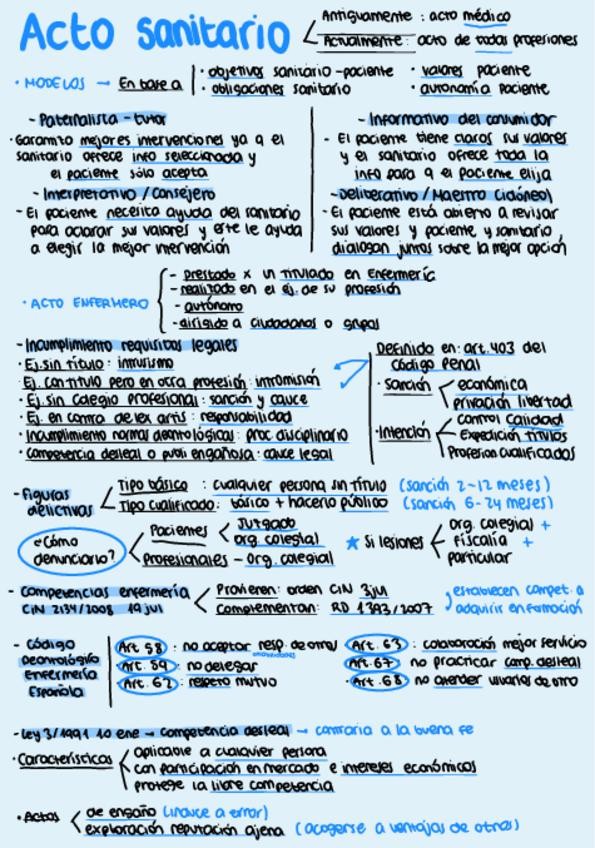 Acto sanitario
Antiguamente : acto médico
Actualmente : acto de todas profesiones
· MODELOS → En base a
· objetivos sanitario-paciente
· obligaciones sanitario
· valores paciente
· autonomía paciente
- Paternalista - tutor
· Garantito mejores intervenciones ya q el
sanitario ofrece info seleccionada y
el paciente sólo acepta
- Interpretativo / Consejero
- El paciente necesita ayuda del sanitario
para aclarar sus valores y este le ayuda
a elegir la mejor intervención
- Informativo del consumidor
- El paciente tiene claros sus valores
y el sanitario ofrece toda la
info para q el paciente elija
- Deliberativo / Maestro (idóneo)
- El paciente está abierto a revisar
sus valores y paciente y sanitario
dialogan juntos sobre la mejor opción
· ACTO ENFERMERO
- prestado x un titulado en Enfermería
- realizado en el ej. de su profesión
- autónomo
- dirigido a ciudadanos o grupos
- Incumplimiento requisitos legales
· Ej. sin título : intrusismo
· Ej. con título pero en otra profesión : intromisión
· Ej. sin colegio profesional : sanción y cauce
· Ej. en contra de lex artis : responsabilidad
· Incumplimiento normas deontológicas : proc disciplinario
· Competencia desleal o publi engañosa : cauce legal
Definido en : art. 403 del
código penal
· Sanción
económica
privación libertad
· Intención
control calidad
Expedición títulos
Profesion cualificados
- Figuras
delictivas
Tipo básico : cualquier persona sin título (sanción 2-12 meses)
Tipo cualificado : básico + hacerlo público (sanción 6-24 meses)
¿Cómo
denunciarlo?
Pacientes
Juzgado
org. colegial
Profesionales - Org. colegial
★ Si lesiones
org. colegial +
fiscalía +
particular
- Competencias enfermería
CIN 2134/2008 19 jul
Provienen : orden CIN 3 jul
Complementan : RD 1393/2007
establecen compet. a
adquirir en formación
- Código
Deontológico
Enfermería
Española
Art. 58 : no aceptar resp. de otros
Art. 59 : no delegar
Art. 62 : respeto mutuo
Art. 63 : colaboración mejor servicio
Art. 67 no practicar comp. desleal
· Art. 68 no atender usuarios de otro
- Ley 3/1991 10 ene → Competencia desleal → contraria a la buena fe
· Características
aplicable a cualquier persona
con participación en mercado e intereses económicos
protege la libre competencia
· Actos
de engaño (induce a error)
exploración reputación ajena (acogerse a ventajas de otros)